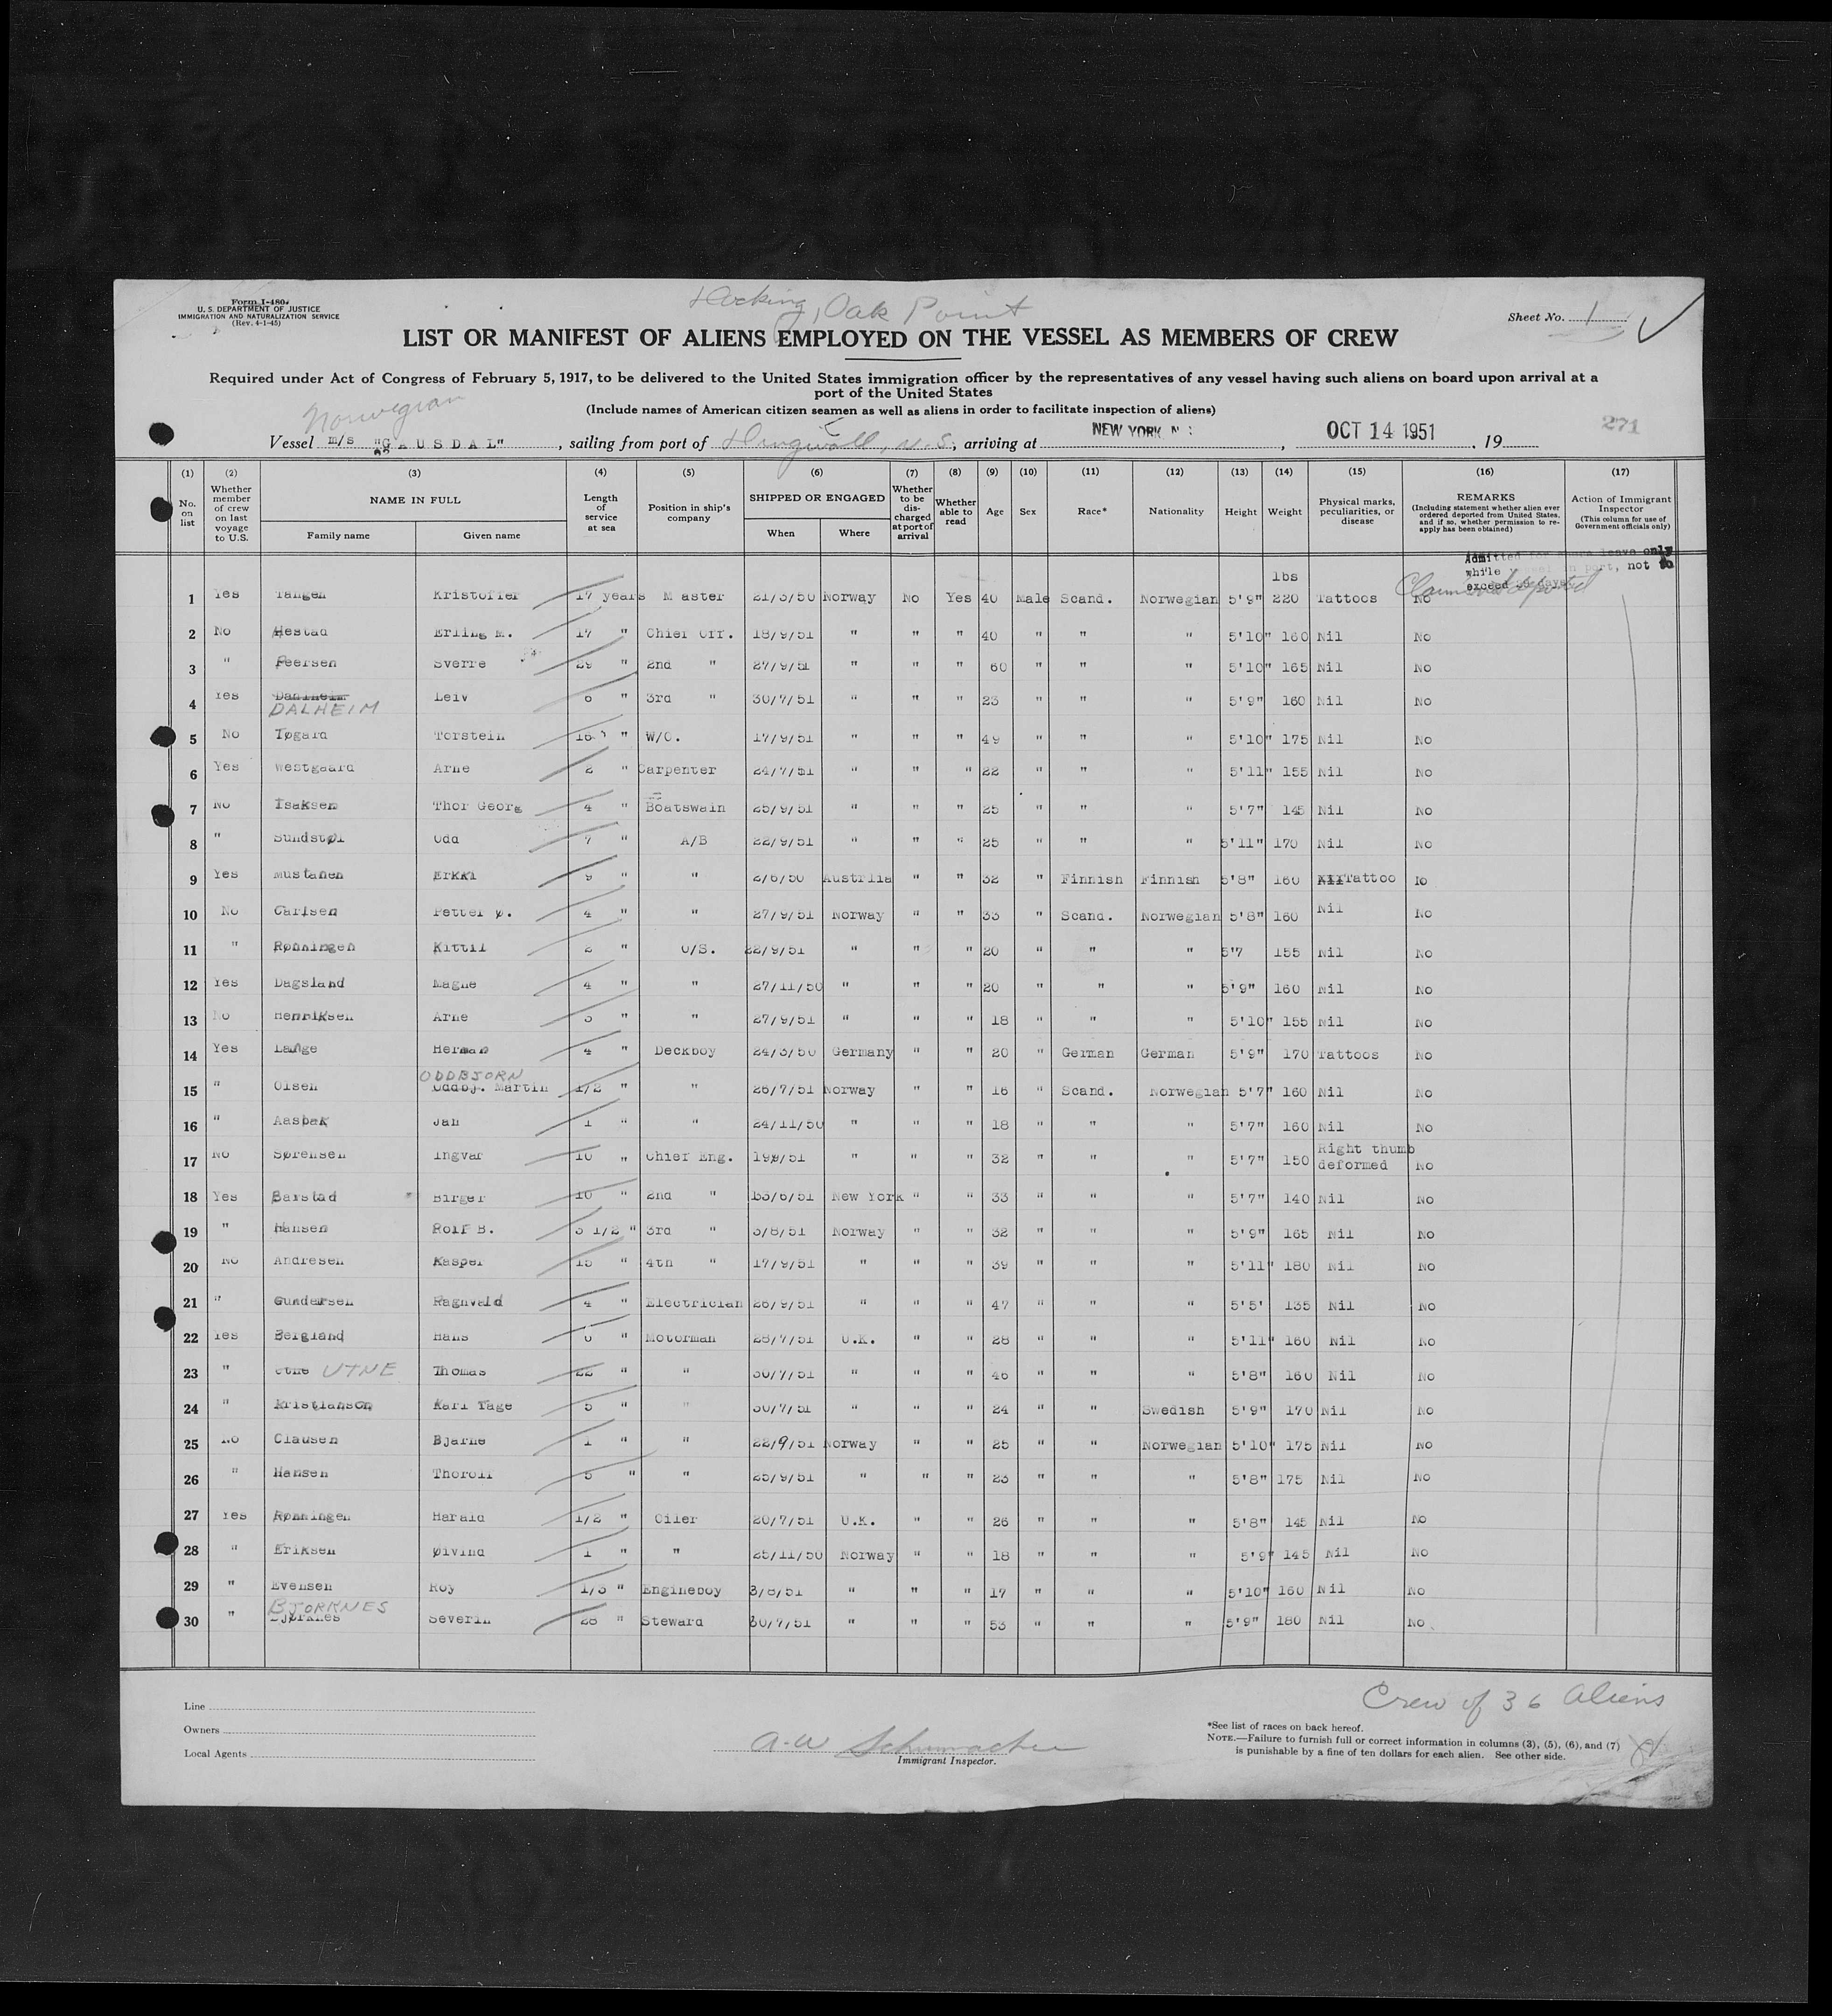 Form I-480
U. S. DEPARTMENT OF JUSTICE
IMMIGRATION AND NATURALIZATION SERVICE
(Rev. 4-1-45)
Docking, Oak Point
Sheet No. 1
LIST OR MANIFEST OF ALIENS EMPLOYED ON THE VESSEL AS MEMBERS OF CREW
Required under Act of Congress of February 5, 1917, to be delivered to the United States immigration officer by the representatives of any vessel having such aliens on board upon arrival at a
port of the United States
(Include names of American citizen seamen as well as aliens in order to facilitate inspection of aliens)
Norwegian
271
Vessel m/s "GAUSDAL", sailing from port of N.S., arriving at NEW YORK, OCT 14 1951, 19
(1) (2) (3) (4) (5) (6) (7) (8) (9) (10) (11) (12) (13) (14) (15) (16) (17)
No. on list
Whether member of crew on last voyage to U.S.
NAME IN FULL
Family name
Given name
Length of service at sea
Position in ship's company
SHIPPED OR ENGAGED
When
Where
Whether to be discharged at port of arrival
Whether able to read
Age
Sex
Race*
Nationality
Height
Weight
Physical marks, peculiarities, or disease
REMARKS
(Including statement whether alien ever ordered deported from United States, and if so, whether permission to re-apply has been obtained)
Action of Immigrant Inspector
(This column for use of Government officials only)
Admitted for shore leave only
while vessel in port, not to
exceed 29 days
lbs
1 Yes Tangen Kristoffer 17 years Master 21/3/50 Norway No Yes 40 Male Scand. Norwegian 5'9" 220 Tattoos No
2 No Hestad Erling M. 17 " Chief Off. 18/9/51 " " " 40 " " " 5'10" 160 Nil No
3 " Peersen Sverre 29 " 2nd " 27/9/51 " " " 60 " " " 5'10" 165 Nil No
4 Yes Dahlheim DALHEIM Leiv 6 " 3rd " 30/7/51 " " " 23 " " " 5'9" 160 Nil No
5 No Tøgard Torstein 16 " W/O. 17/9/51 " " " 49 " " " 5'10" 175 Nil No
6 Yes Westgaard Arne 2 " Carpenter 24/7/51 " " " 22 " " " 5'11" 155 Nil No
7 No Isaksen Thor Georg 4 " Boatswain 25/9/51 " " " 25 " " " 5'7" 145 Nil No
8 " Sundstøl Odd 7 " A/B 22/9/51 " " " 25 " " " 5'11" 170 Nil No
9 Yes Mustanen Erkki 9 " " 2/6/50 Austrlia " " 32 " Finnish Finnish 5'8" 160 Tattoo No
10 No Carlsen Petter Ø. 4 " " 27/9/51 Norway " " 33 " Scand. Norwegian 5'8" 160 Nil No
11 " Rønningen Kittil 2 " O/S. 22/9/51 " " " 20 " " " 5'7 155 Nil No
12 Yes Dagsland Magne 4 " " 27/11/50 " " " 20 " " " 5'9" 160 Nil No
13 No Henriksen Arne 3 " " 27/9/51 " " " 18 " " " 5'10" 155 Nil No
14 Yes Lange Herman 4 " Deckboy 24/3/50 Germany " " 20 " German German 5'9" 170 Tattoos No
ODDBJORN
15 " Olsen Oddbj. Martin 1/2 " " 26/7/51 Norway " " 16 " Scand. Norwegian 5'7" 160 Nil No
16 " Aasbak Jan 1 " " 24/11/50 " " " 18 " " " 5'7" 160 Nil No
17 No Sørensen Ingvar 10 " Chief Eng. 199/51 " " " 32 " " " 5'7" 150 Right thumb deformed No
18 Yes Barstad Birger 10 " 2nd " 13/6/51 New York " " 33 " " " 5'7" 140 Nil No
19 " Hansen Rolf B. 3 1/2 " 3rd " 3/8/51 Norway " " 32 " " " 5'9" 165 Nil No
20 No Andresen Kasper 15 " 4th " 17/9/51 " " " 39 " " " 5'11" 180 Nil No
21 " Gundersen Ragnvald 4 " Electrician 26/9/51 " " " 47 " " " 5'5' 135 Nil No
22 Yes Bergland Hans 6 " Motorman 28/7/51 U.K. " " 28 " " " 5'11" 160 Nil No
23 " Utne UTNE Thomas 22 " " 30/7/51 " " " 46 " " " 5'8" 160 Nil No
24 " Kristianson Karl Tage 5 " " 30/7/51 " " " 24 " " Swedish 5'9" 170 Nil No
25 No Clausen Bjarne 1 " " 22/9/51 Norway " " 25 " " Norwegian 5'10" 175 Nil No
26 " Hansen Thorolf 5 " " 25/9/51 " " " 23 " " " 5'8" 175 Nil No
27 Yes Rønningen Harald 1/2 " Oiler 20/7/51 U.K. " " 26 " " " 5'8" 145 Nil No
28 " Eriksen Øivind 1 " " 25/11/50 Norway " " 18 " " " 5'9" 145 Nil No
29 " Evensen Roy 1/3 " Engineboy 3/8/51 " " " 17 " " " 5'10" 160 Nil No
BJORKNES
30 " Bjørknes Severin 28 " Steward 30/7/51 " " " 53 " " " 5'9" 180 Nil No
Crew of 36 Aliens
Line
Owners
Local Agents
A-W Schumacher
Immigrant Inspector.
*See list of races on back hereof.
NOTE.—Failure to furnish full or correct information in columns (3), (5), (6), and (7)
is punishable by a fine of ten dollars for each alien. See other side.